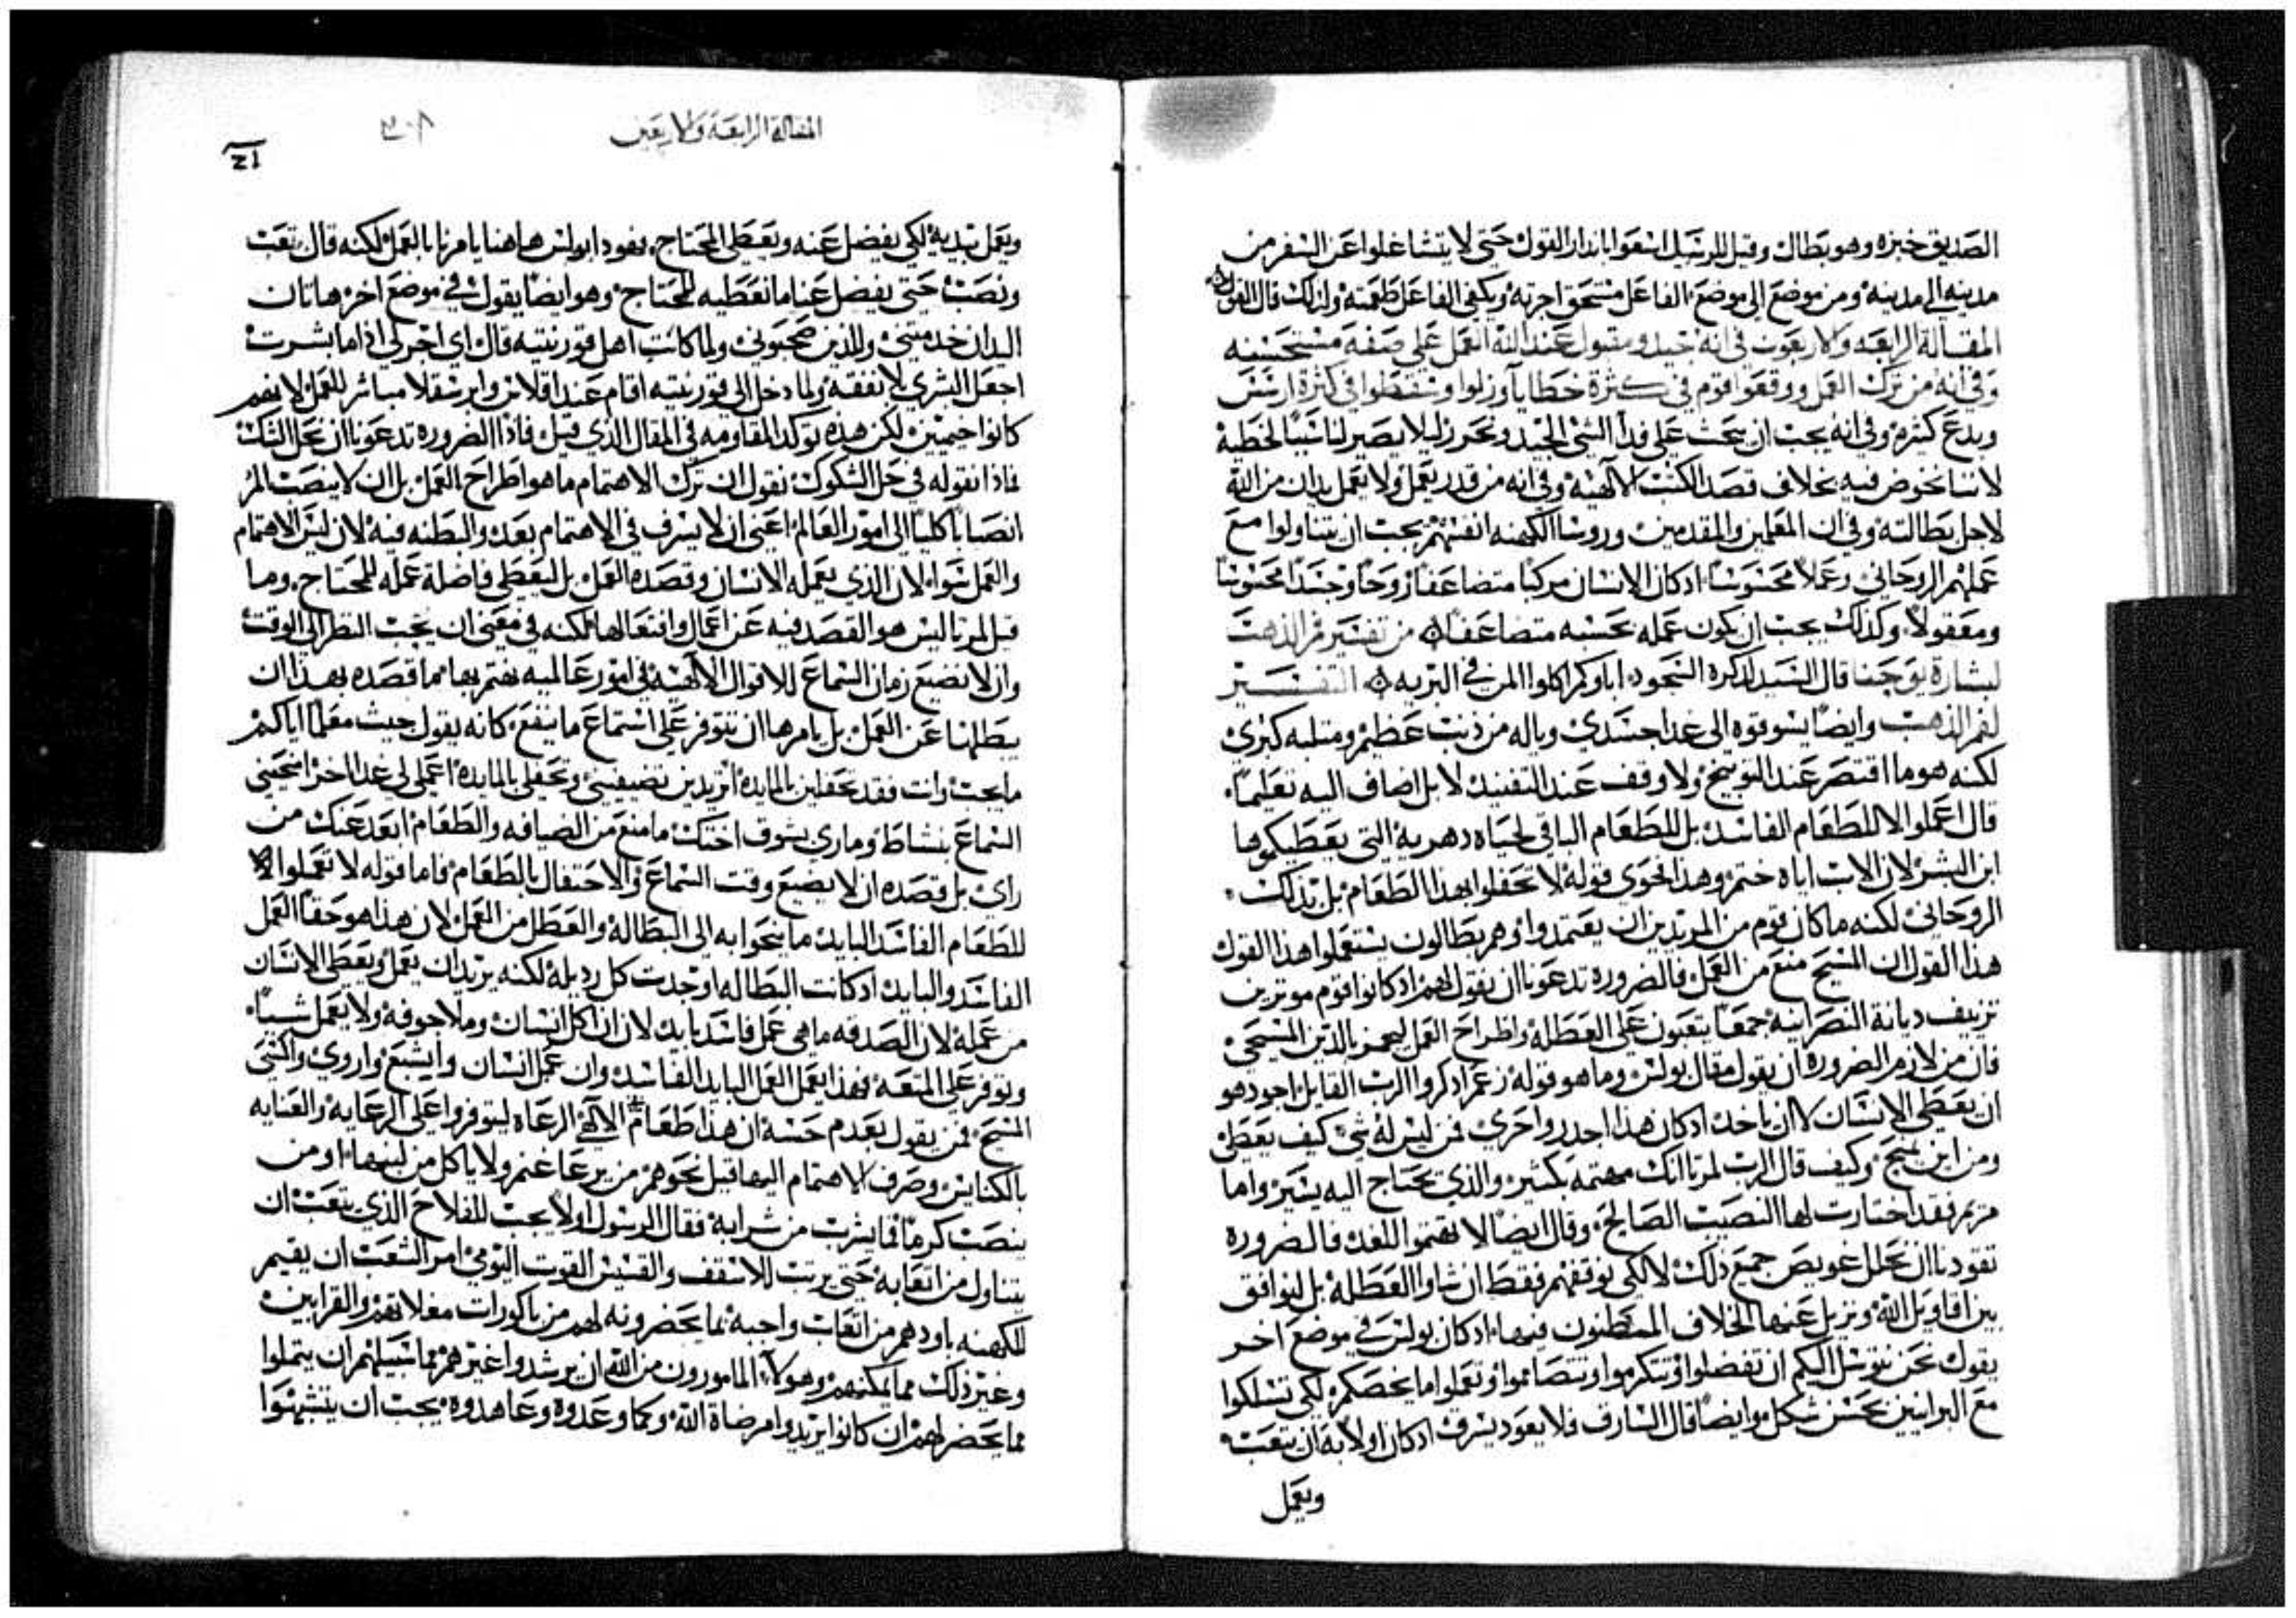 الصديق خبزه وهو بطال وقيل للرسل اسعوا بانذار القول حتى لا يتشاغلوا عن السفر من
مدينه الى مدينه ومن موضع الى موضع الفاعل مستحق اجرته ويكفي الفاعل طعمته ولذلك قال القول
المقالة الرابعه والاربعون في انه جيد ومقبول عند الله العمل على صفه مستحسنه
وفي انه من ترك العمل ووقعوا قوم في كثرة خطايا وزلوا وسقطوا في كثرة ارسس
وبدع كثيره وفي انه يجب ان يبحث على فدا الشي الجيد ونحرز ليلا يصير لنا سبباً لخطيه
لاننا نخوض فيه بخلاف قصد الكتب الالهيه وفي انه من قدر يعمل ولا يعمل يدان من الله
لاجل بطالته وفي ان المعلمين والمقدمين وروسا الكهنه انفسهم يجب ان يتناولوا مع
عملهم الروحاني وعملاً محسوساً ادكان الانسان مركباً متضاعفاً روحاً وجسداً محسوساً
ومعقولاً وكذلك يجب ان يكون عمله بحسبه متضاعفاً من تفسير فم الذهب
لبشارة يوحنا قال السيد لذكره السجود اباوكم اكلوا المن في البريه التفسير
لفم الذهب وايضاً يسوقوه الى غدا جسدي وياله من ذنب عظيم ومثلبه كبرى
لكنه هو ما اقتصر عند التوبيخ ولا وقف عند التفنيد لا بل اضاف اليه تعليماً
قال اعملوا لا للطعام الفاسد بل للطعام الباقي لحياه دهرية التي يعطيكموها
ابن البشر لان الاب اياه ختم وهذا الحوى قوله لا تحفلوا بهذا الطعام بل بذلك
الروحاني لكنه ما كان قوم من المريدين ان يعتمدوا وهم بطالون يستعملوا هذا القول
هذا القول ان المسيح منع من العمل فالضروره تدعونا ان نقول لهم اذ كانوا قوم موثرين
تزييف ديانة النصرانيه جمعاً يتعبون على العطله واطراح العمل ليهم بالدين المسيحي
فان من لازم الضروره ان يقول مقال بولس وما هو قوله زعم اذكروا الرب القايل اجود هو
ان يعطي الانسان لا ان ياخذ ادكان هذا اجدر واحرى فمن ليس له شي كيف يعطي
ومن اين يمنح وكيف قال الرب لمرتا انك مهتمه بكثير والذي تحتاج اليه يسير واما
مريم فقد اختارت لها النصيب الصالح وقال ايضاً لا تهتموا للغد فالضروره
تقودنا ان نحلل عويص جميع ذلك لا لكي نوقفهم فقط ان شاوا العطله بل لنوافق
بين اقاويل الله ونزيل عنها الخلاف المظنون فيها ادكان بولس في موضع اخر
يقول نحن نتوسل اليكم ان تفضلوا وتتكرموا وتتصامموا وتعملوا ما يخصكم لكي تسلكوا
مع البرانيين بحسن شكل وايضاً قال السارق فلا يعود يسرق ادكان اولا به ان يتعب
ويعمل
المقالة الرابعة والاربعين
٣٠٨
ويعمل بيديه لكي يفضل عنه ويعطي المحتاج فهوذا بولس هاهنا يامرنا بالعمل لكنه قال نتعب
وننصب حتى يفضل عنا ما نعطيه للمحتاج وهو ايضاً يقول في موضع اخر هاتان
اليدان خدمتني وللذين صحبوني ولما كاتب اهل قورنتيه قال اي اجر لي اذا ما بشرت
اجعل البشرى بلا نفقه ولما دخل الى قورنتيه اقام عند اقلاس وابرسقلا مباشر للعمل لانهم
كانوا خيميين لكن هذه توكد المقاومه في المقال الذي قيل فاذا الضروره تدعونا ان نحل الشك
فماذا نقوله في حل الشكوك نقول ان ترك الاهتمام ما هو اطراح العمل بل ان لا ينصب المر
انصباباً كلياً الى امور العالم اعني ان لا يسرف في الاهتمام بعد والبطنه فيه لان ليس الاهتمام
والعمل سوا لان الذي يعمله الانسان وقصده العمل بل ليعطي فاضلة عمله للمحتاج وما
قيل لمرتا ليس هو القصد فيه عن اعمال وافتعالها لكنه في معنى ان يجب النظر الى الوقت
وان لا نضيع زمان السماع للاقوال الالهيه في امور عالميه نهتم بها فما قصده بهذا ان
يبطلها عن العمل بل يامرها ان تتوفر على استماع ما ينفع كانه يقول جيت معلماً اياكم
ما يجب وانت فقد تحفلين بالمايده اتريدين تضيفيني وتحفلي بالمايده اعملي لي غدا اخر امنحيني
السماع بنشاط وماري بشوق اختك ما منع من الضيافه والطعام ابعد عنك من
راي بل قصده ان لا يضيع وقت السماع والاحتفال بالطعام فاما قوله لا تعملوا لا
للطعام الفاسد البايد ما ينحوا به الى البطالة والعطل من العمل لان هذا هو حقاً العمل
الفاسد والبايد ادكانت البطاله اوجدت كل رديله لكنه يريد ان يعمل ويعطي الانسان
من عمله لان الصدقه ما هي عمل فاسد بايد لان ان اكل انسان وملا جوفه ولا يعمل شياً
وتوفر على المتعه فهذا يعمل العمل البايد الفاسد وان عمل انسان واشبع واروى واكسى
المسيح فمن يقول بعدم حسه ان هذا طعام الالاهي الرعاه ليتوفروا على الرعايه والعنايه
بالكنايس وصرف الاهتمام اليها قيل نحوهم من يرعا غنم ولا ياكل من لبنها او من
ينصب كرماً فما يشرب من شرابه فقال الرسول اولاً يجب للفلاح الذي يتعب ان
يتناول من اتعابه حتى يرتب للاسقف والقسيس القوت اليومي امر الشعب ان يقيم
للكهنه باودهم من اتعاب واجبه بما يحضرونه لهم من باكورات مغلاتهم والقرابين
وغير ذلك مما يمكنهم وهولا المامورون من الله ان يرشدوا غيرهم فما سبيلهم ان يتملوا
بما يحضر لهم ان كانوا يريدوا مرضاة الله وكما وعدوه وعاهدوه يجب ان يتشبهوا